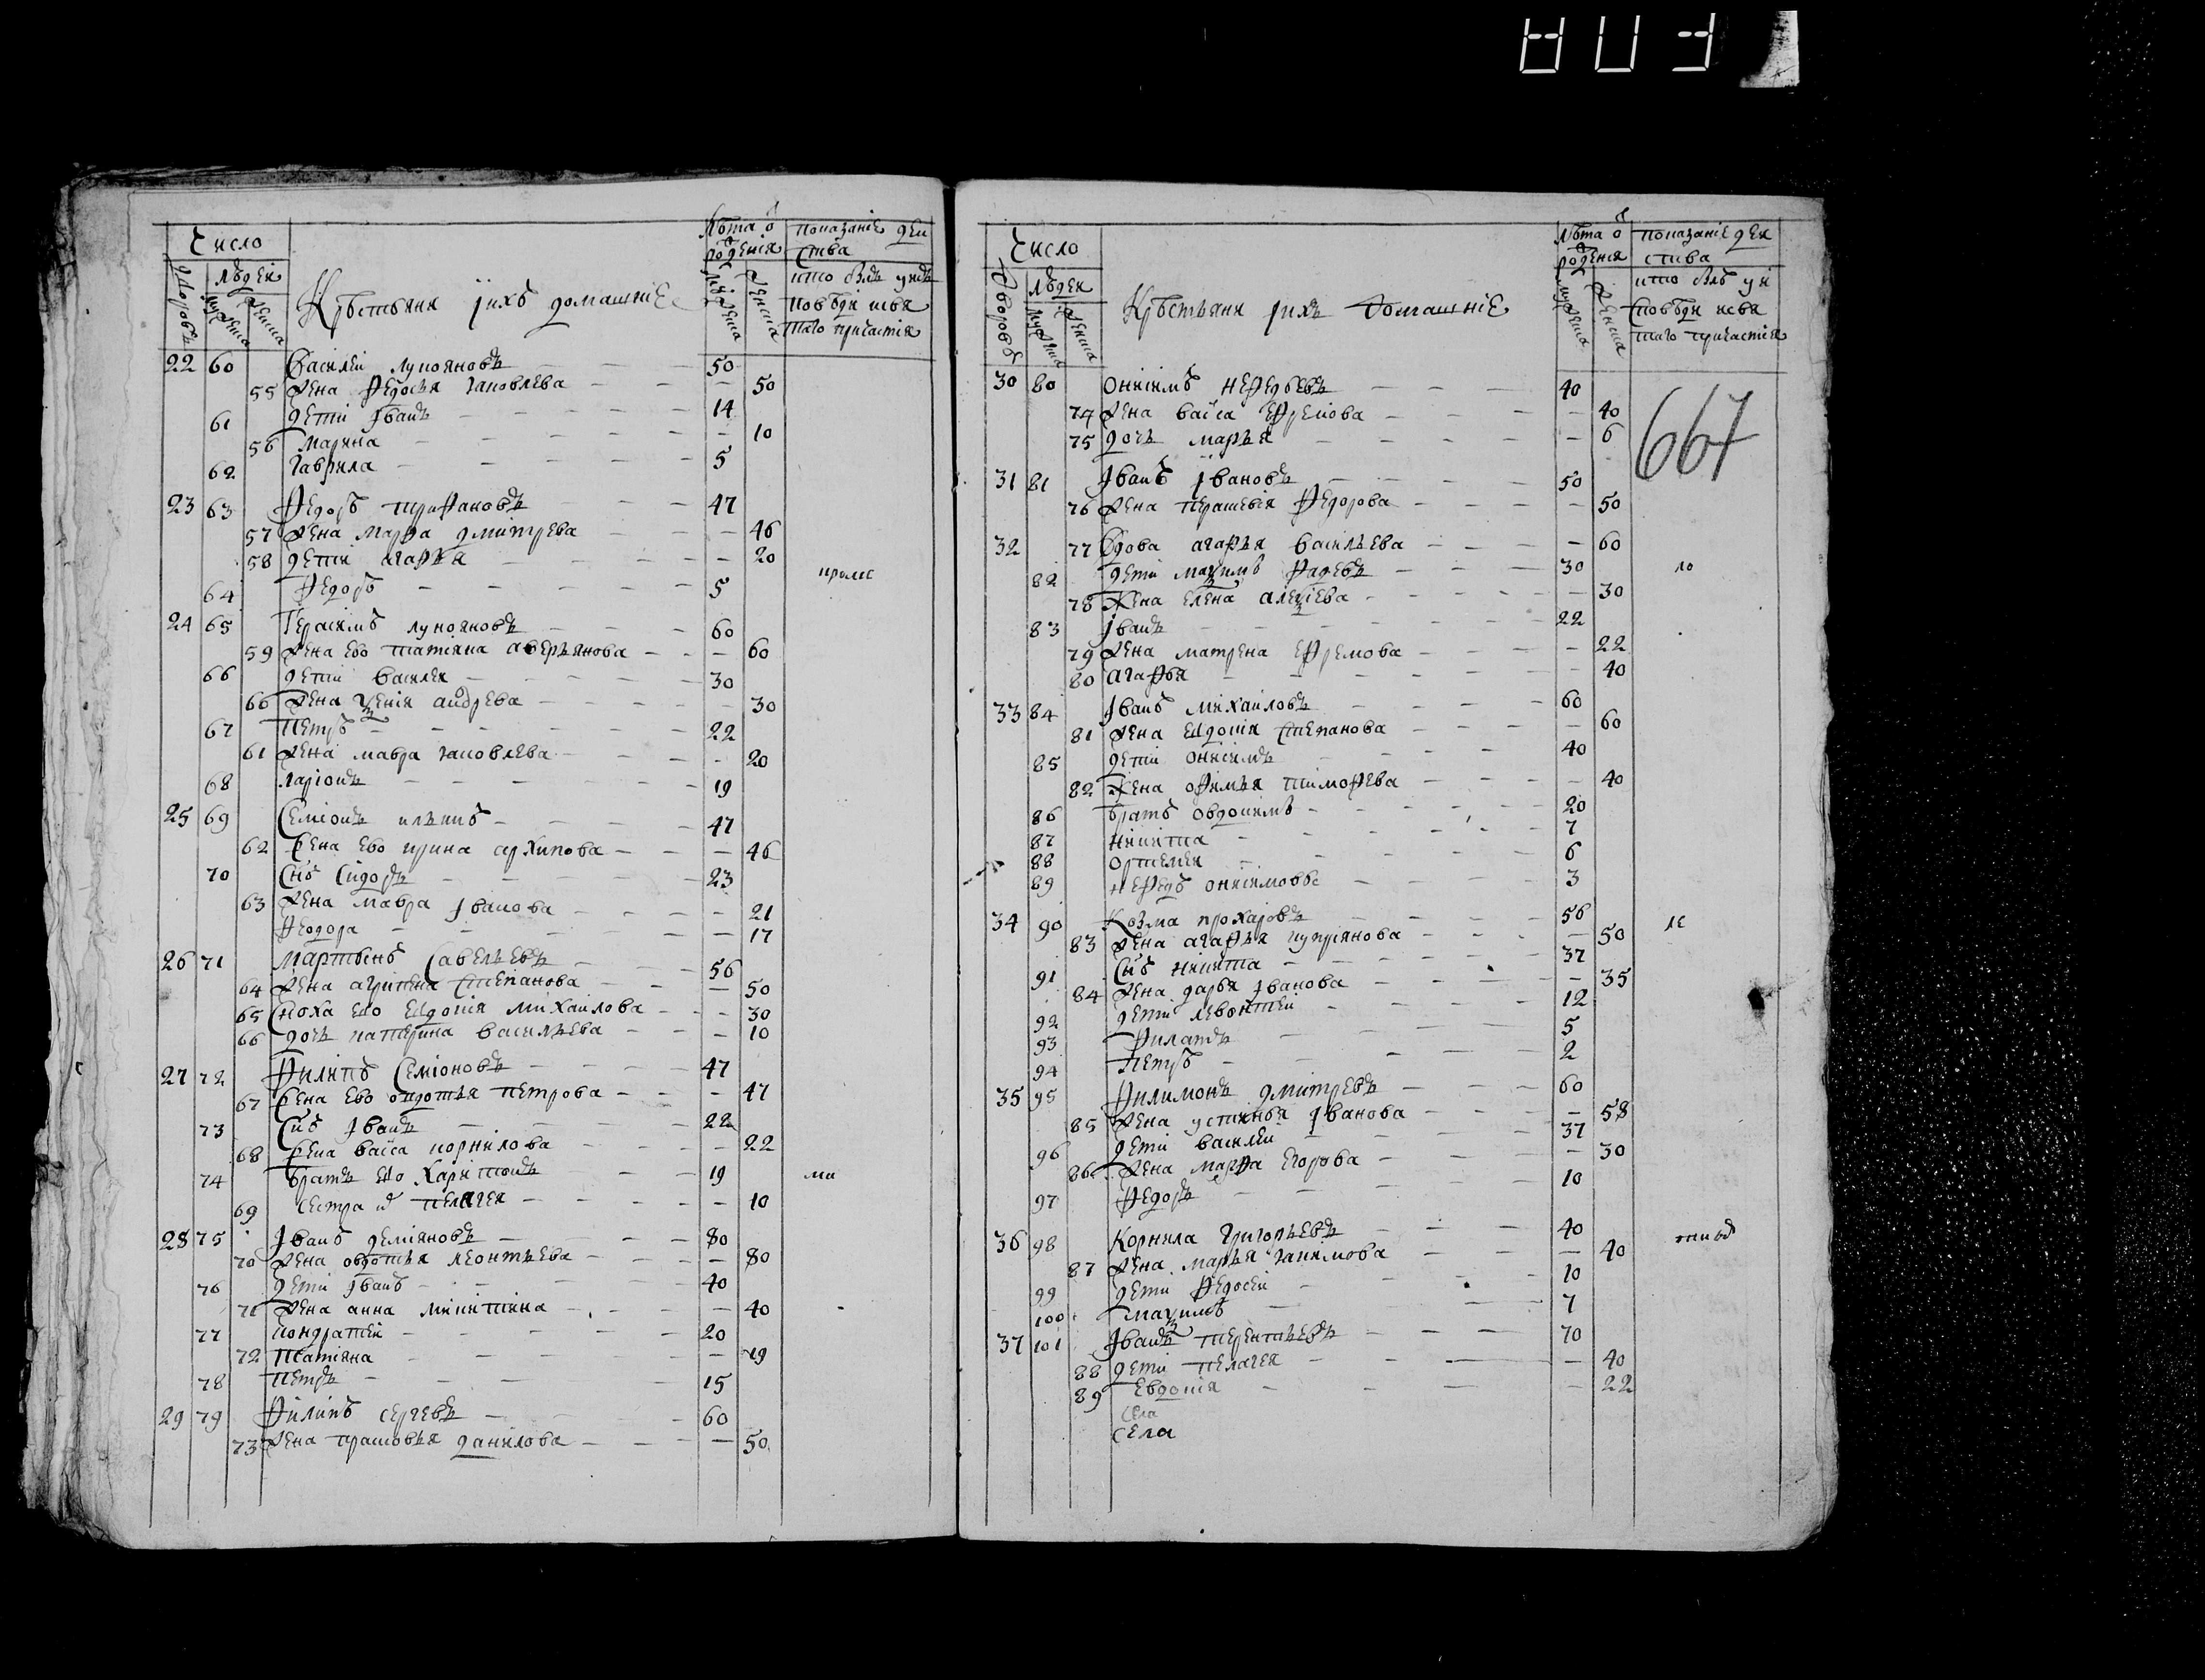 Число
Лѣта о
рожденія
показаніе дѣи
ства
людеи
дворовъ
мужеска
женска
Крѣстьяня ихъ домашніе
кто былъ унихъ
повѣди исвя
таго причастія
22 60 Василеи лукояновъ 50
55 жена Федосья яковлева 50
61 дети Іванъ 14
56 Марина 10
62 гаврила 5
23 63 Федоръ трифановъ 47
57 жена марфа дмитрева 46
58 дети агафья 20
64 Федоръ 5
24 65 Герасимъ лукояновъ 60
59 жена ево татіяна аверьянова 60
66 дети василеи 30
60 жена ѯенія андрева 30
67 Петръ 22
61 жена мавра яковлева 20
68 ларіонъ 19
25 69 Семіонъ ильинъ 47
62 жена ево ирина архипова 46
70 снъ Сидоръ 23
63 жена мавра Іванова 21
Федора 17
26 71 мартынъ Савельевъ 56
64 жена агрипена степанова 50
65 сноха ево евдокія михаилова 30
66 дочь катерина василъева 10
27 72 Филипъ Семіоновъ 47
67 жена ево овдотья петрова 47
73 снъ Іванъ 22
68 жена васса корнилова 22
74 братъ ево Харитонъ 19
69 сестра пелагея 10
28 75 Іванъ деміяновъ 80
70 жена овдотья леонтьева 80
76 дети Іванъ 40
71 жена анна микитина 40
77 кондратеи 20
72 татіяна 19
78 петръ 15
29 79 Филипъ сергевъ 60
73 жена прасковья данилова 50
Число
Лѣта о
рожденія
показаніе деи
ства
людеи
дворовъ
мужеска
женска
Крѣстьяня ихъ домашніе
кто былъ уи
споведи исвя
таго причастія
667
30 80 онисимъ нефедьевъ 40
74 жена васса ефремова 40
75 дочь марья 6
31 81 Іванъ Івановъ 50
76 жена парасковія Федорова 50
32 77 вдова агафья василъева 60
82 дети маѯимъ фадевъ 30
78 жена елена алеѯіева 30
83 Іванъ 22
79 жена матрена ефремова 22
80 агафья 40
33 84 Іванъ михаиловъ 60
81 жена евдокія степанова 60
85 дети онисимъ 40
82 жена офимья тимофева 40
86 братъ овдокимъ 20
87 никита 7
88 ортемеи 6
89 нефедъ онисимовъ 3
34 90 Козма прохаровъ 56
83 жена агафья купріянова 50
91 снъ никита 37
84 жена дарья Іванова 35
92 дети левонтеи 12
93 Филатъ 5
94 Петръ 2
35 95 Филимонъ дмитревъ 60
85 жена устинья Іванова 58
96 дети василеи 37
86 жена марфа егорова 30
97 Федоръ 10
36 98 Корнила григорьевъ 40
87 жена марья якимова 40
99 дети Федосеи 10
100 маѯимъ 7
37 101 Іванъ терентьевъ 70
88 дети пелагея 40
89 Евдокія 22
села
села